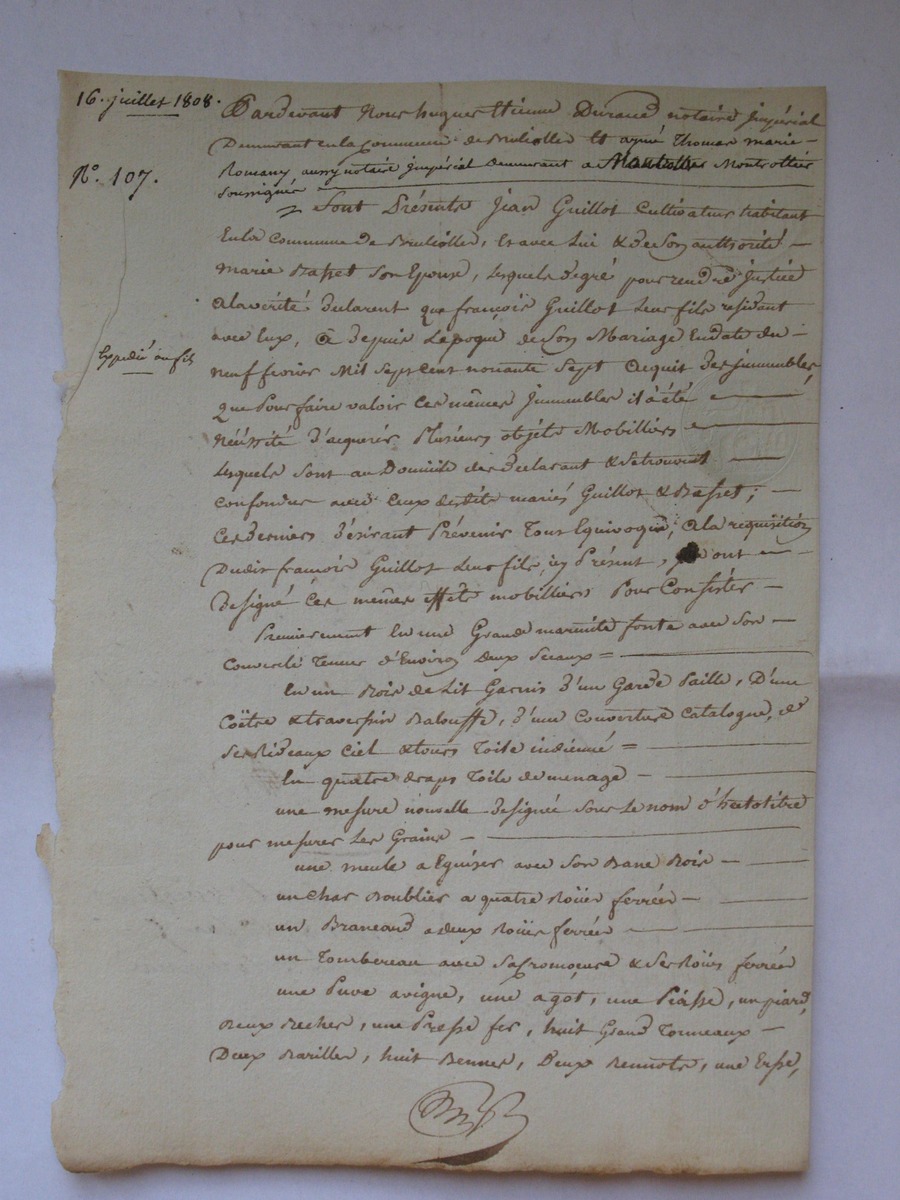 16. juillet 1808.
N°. 107.
Expédié au fils
Pardevant Nous hugues Etienne Durand notaire Impérial
Demeurant en la Commune de Brulliolles Et aymé Thomas marie
Romany, aussy notaire Impérial demeurant a Montrottier
soussignés
Sont Présents Jean Guillot Cultivateur habitant
En la Commune de Brullioles, Et avec Lui & de Son authorité
marie Basset Son Epouse, Lesquels de gré pour rendre justice
a la vérité déclarent que françois Guillot Leur fils résidant
avec Eux, à depuis L'epoque de Son Mariage En date du
neuf fevrier Mil Sept cent nonante Sept acquit des jmmeubles,
que Pour faire valoir Ces mêmes Jmmeubles il à été
nécéssité d'acquerir Plusieurs objets Mobilliers
Lesquels Sont au Domicile des déclarant & Se trouvent
confondus avec Ceux desdits mariés Guillot & Basset;
Ces derniers désirant Prévenir Tout Equivoque, a la requisition
Dudit françois Guillot Leur fils, icy Présent, ont
désigné Ces mêmes effets mobilliers Pour Consister
Premierement En une Grande marmite fonte avec Son
Couvercle Teneur d'Environ deux Seaux =
En un Bois de Lit Garnis d'un Garde Paille, D'une
Coëtre & traversin Balouffe, d'une Couverture Catalogne, &
Ses Rideaux Ciel & tours Toile indienne =
En quatre draps Toile de menage
une mesure nouvelle désignée Sous Le nom d'hectolitre
pour mesurer Les Grains
une meule a Eguiser avec Son Banc Bois
un Char Roublier a quatre Roües ferrées
un Brancard a deux Roües ferrées
un Tombereau avec & Ses Roües ferrées
une Puve avigne, une agot, une Piasse, un piard,
deux Beches, une Presse fer, huit Grand Tonneaux
Deux Barilles, huit Bennes, Deux Bennots, une Erse,